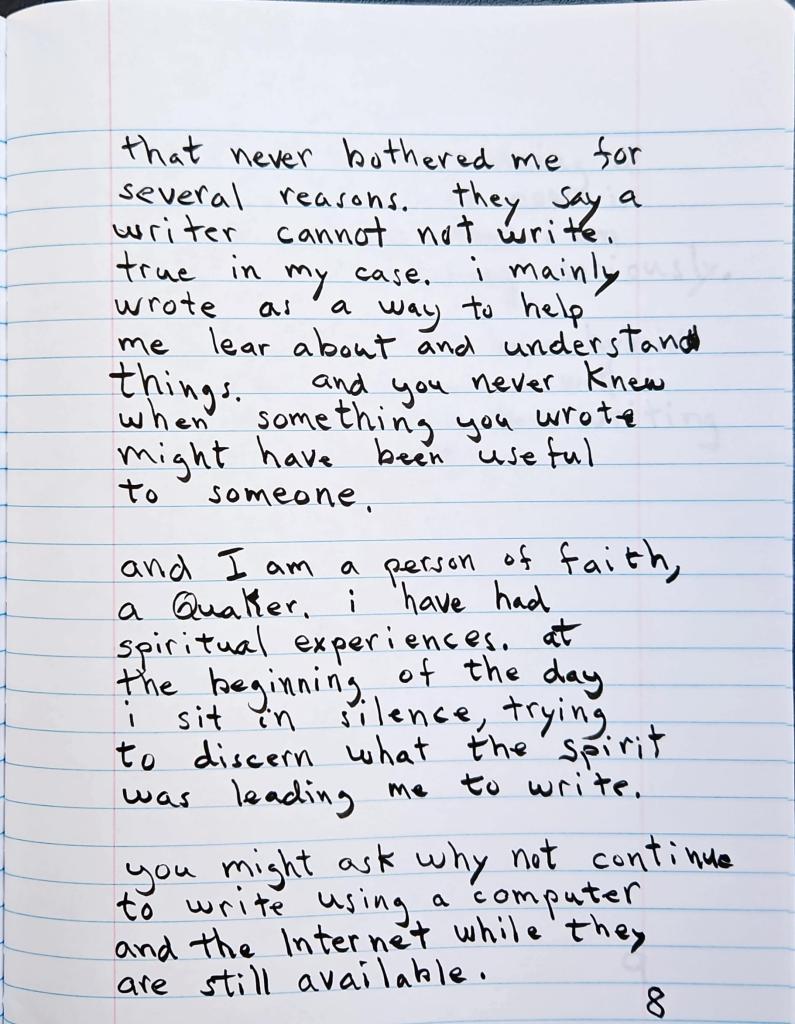 that never bothered me for
several reasons. they say a
writer cannot not write.
true in my case. i mainly
wrote as a way to help
me lear about and understand
things. and you never knew
when something you wrote
might have been useful
to someone.
and I am a person of faith,
a Quaker. i have had
spiritual experiences. at
the beginning of the day
i sit in silence, trying
to discern what the spirit
was leading me to write.
you might ask why not continue
to write using a computer
and the Internet while they
are still available.
8